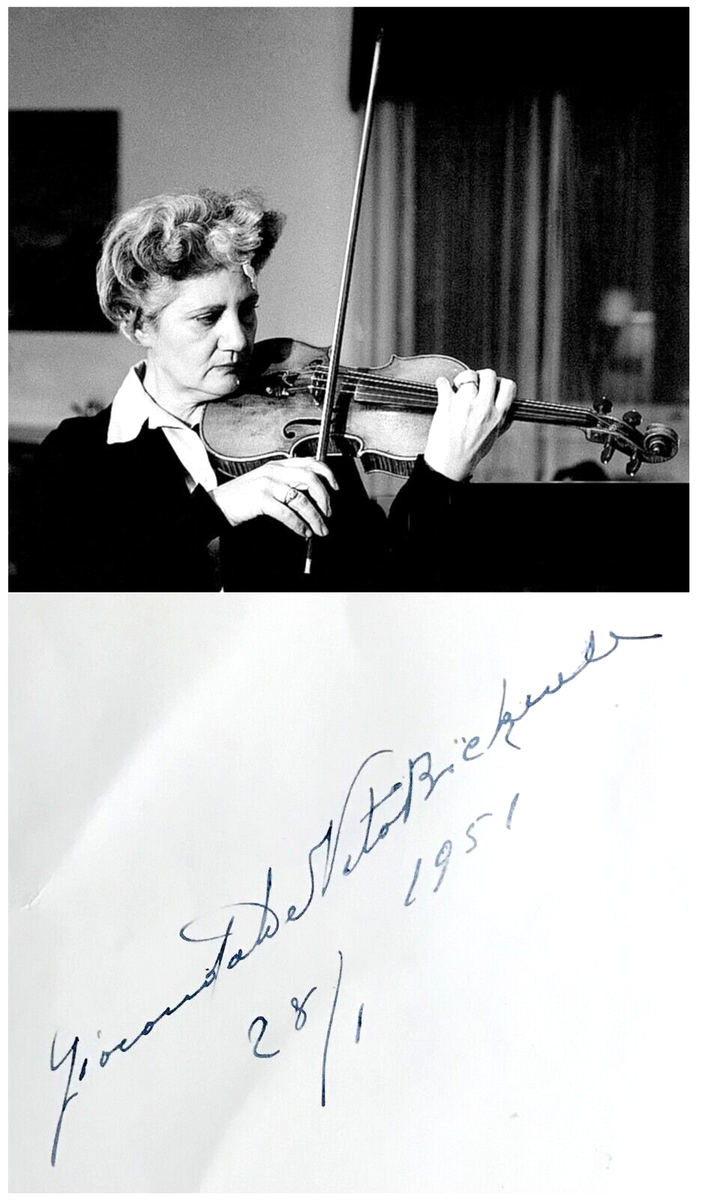 Gioconda De Vito Bicknell
1951
28/1